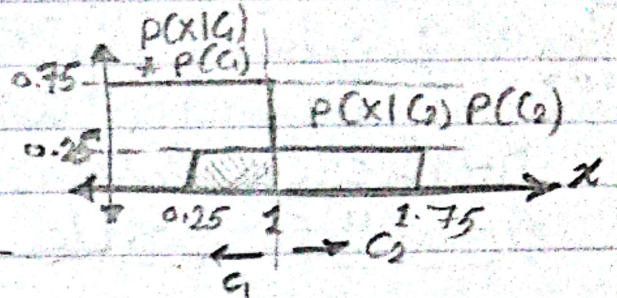 P(X|C1)
* P(C1)
0.75
P(X|C2) P(C2)
0.25
x
0.25 1 1.75
C2
C1